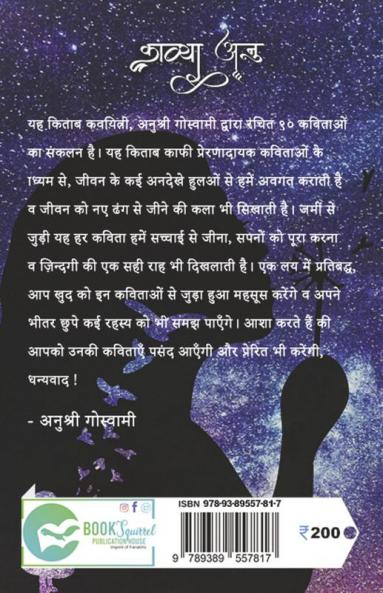 काव्या अन्त
यह किताब कवयित्री, अनुश्री गोस्वामी द्वारा रचित ९० कविताओं
का संकलन है। यह किताब काफी प्रेरणादायक कविताओं के
ध्यम से, जीवन के कई अनदेखे हुलओं से हमें अवगत कराती है
व जीवन को नए ढंग से जीने की कला भी सिखाती है। जमीं से
जुड़ी यह हर कविता हमें सच्चाई से जीना, सपनों को पूरा करना
व ज़िन्दगी की एक सही राह भी दिखलाती है। एक लय में प्रतिबद्ध,
आप खुद को इन कविताओं से जुड़ा हुआ महसूस करेंगे व अपने
भीतर छुपे कई रहस्य को भी समझ पाएँगे। आशा करते हैं की
आपको उनकी कविताएँ पसंद आएँगी और प्रेरित भी करेंगी,
धन्यवाद !
- अनुश्री गोस्वामी
BOOK Squirrel
PUBLICATION HOUSE
ISBN 978-93-89557-81-7
9 789389 557817
₹200